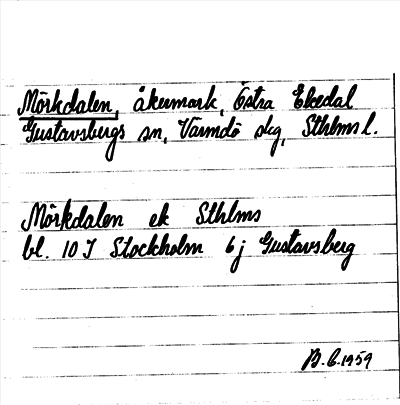 Mörkdalen, åkermark, Östra Ekedal
Gustavsbergs sn, Värmdö skg, Sthlms l.
Mörkdalen ek Sthlms
bl. 10 I Stockholm 6j Gustavsberg
B.C. 1959